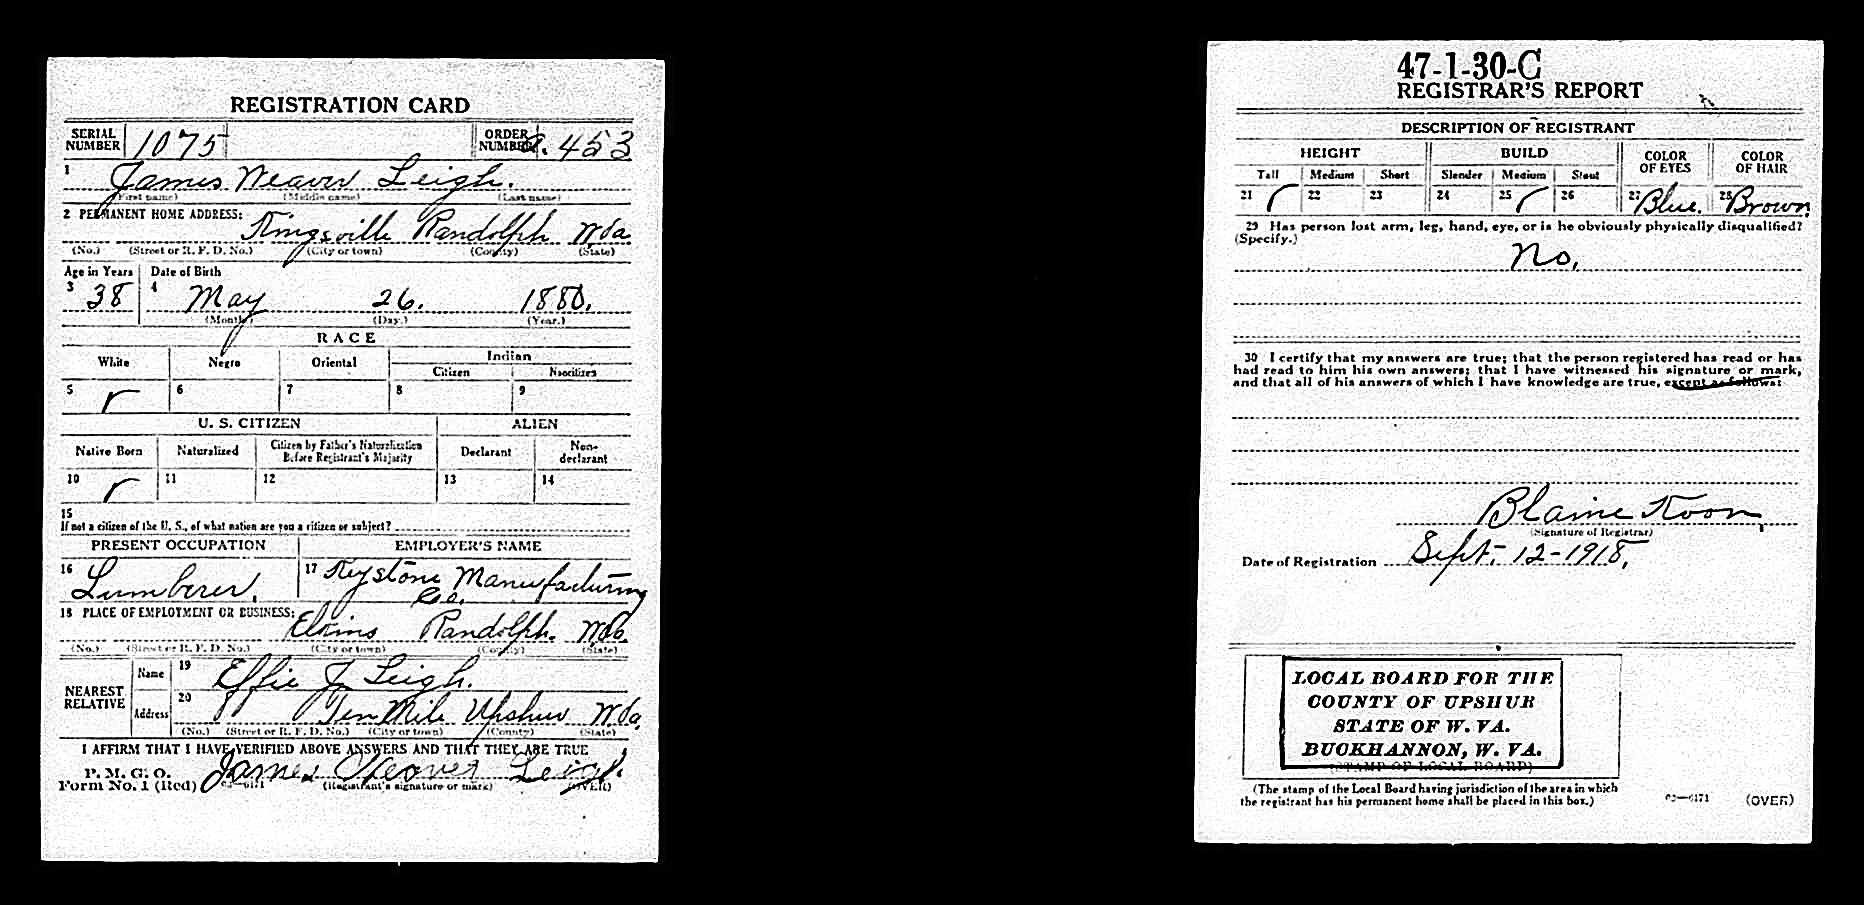 REGISTRATION CARD
SERIAL NUMBER 1075 ORDER NUMBER a. 453
1 James Weaver Leigh.
(First name) (Middle name) (Last name)
2 PERMANENT HOME ADDRESS:
Kingsville Randolph W.Va.
(No.) (Street or R. F. D. No.) (City or town) (County) (State)
Age in Years Date of Birth
3 38 4 May 26. 1880.
(Month.) (Day.) (Year.)
RACE
White Negro Oriental Indian
Citizen Noncitizen
5 6 7 8 9
U. S. CITIZEN ALIEN
Native Born Naturalized Citizen by Father's Naturalization Before Registrant's Majority Declarant Non-declarant
10 11 12 13 14
15
If not a citizen of the U. S., of what nation are you a citizen or subject?
PRESENT OCCUPATION EMPLOYER'S NAME
16 Lumberer. 17 Keystone Manufacturing
Co.
18 PLACE OF EMPLOYMENT OR BUSINESS:
Elkins Randolph. W.Va.
(No.) (Street or R. F. D. No.) (City or town) (County) (State)
NEAREST RELATIVE
Name 19 Effie J. Leigh.
Address 20 Ten Mile Upshur W.Va.
(No.) (Street or R. F. D. No.) (City or town) (County) (State)
I AFFIRM THAT I HAVE VERIFIED ABOVE ANSWERS AND THAT THEY ARE TRUE
P. M. G. O.
Form No. 1 (Red) 03—6171 James Weaver Leigh.
(Registrant's signature or mark) (OVER)
47-1-30-C
REGISTRAR'S REPORT
DESCRIPTION OF REGISTRANT
HEIGHT BUILD COLOR OF EYES COLOR OF HAIR
Tall Medium Short Slender Medium Stout
21 22 23 24 25 26 27 Blue. 28 Brown
29 Has person lost arm, leg, hand, eye, or is he obviously physically disqualified?
(Specify.)
No.
30 I certify that my answers are true; that the person registered has read or has
had read to him his own answers; that I have witnessed his signature or mark,
and that all of his answers of which I have knowledge are true, except as follows:
Blaine Koon,
(Signature of Registrar)
Date of Registration Sept. 12-1918.
LOCAL BOARD FOR THE
COUNTY OF UPSHUR
STATE OF W. VA.
BUCKHANNON, W. VA.
(STAMP OF LOCAL BOARD)
(The stamp of the Local Board having jurisdiction of the area in which
the registrant has his permanent home shall be placed in this box.)
03—6171 (OVER)